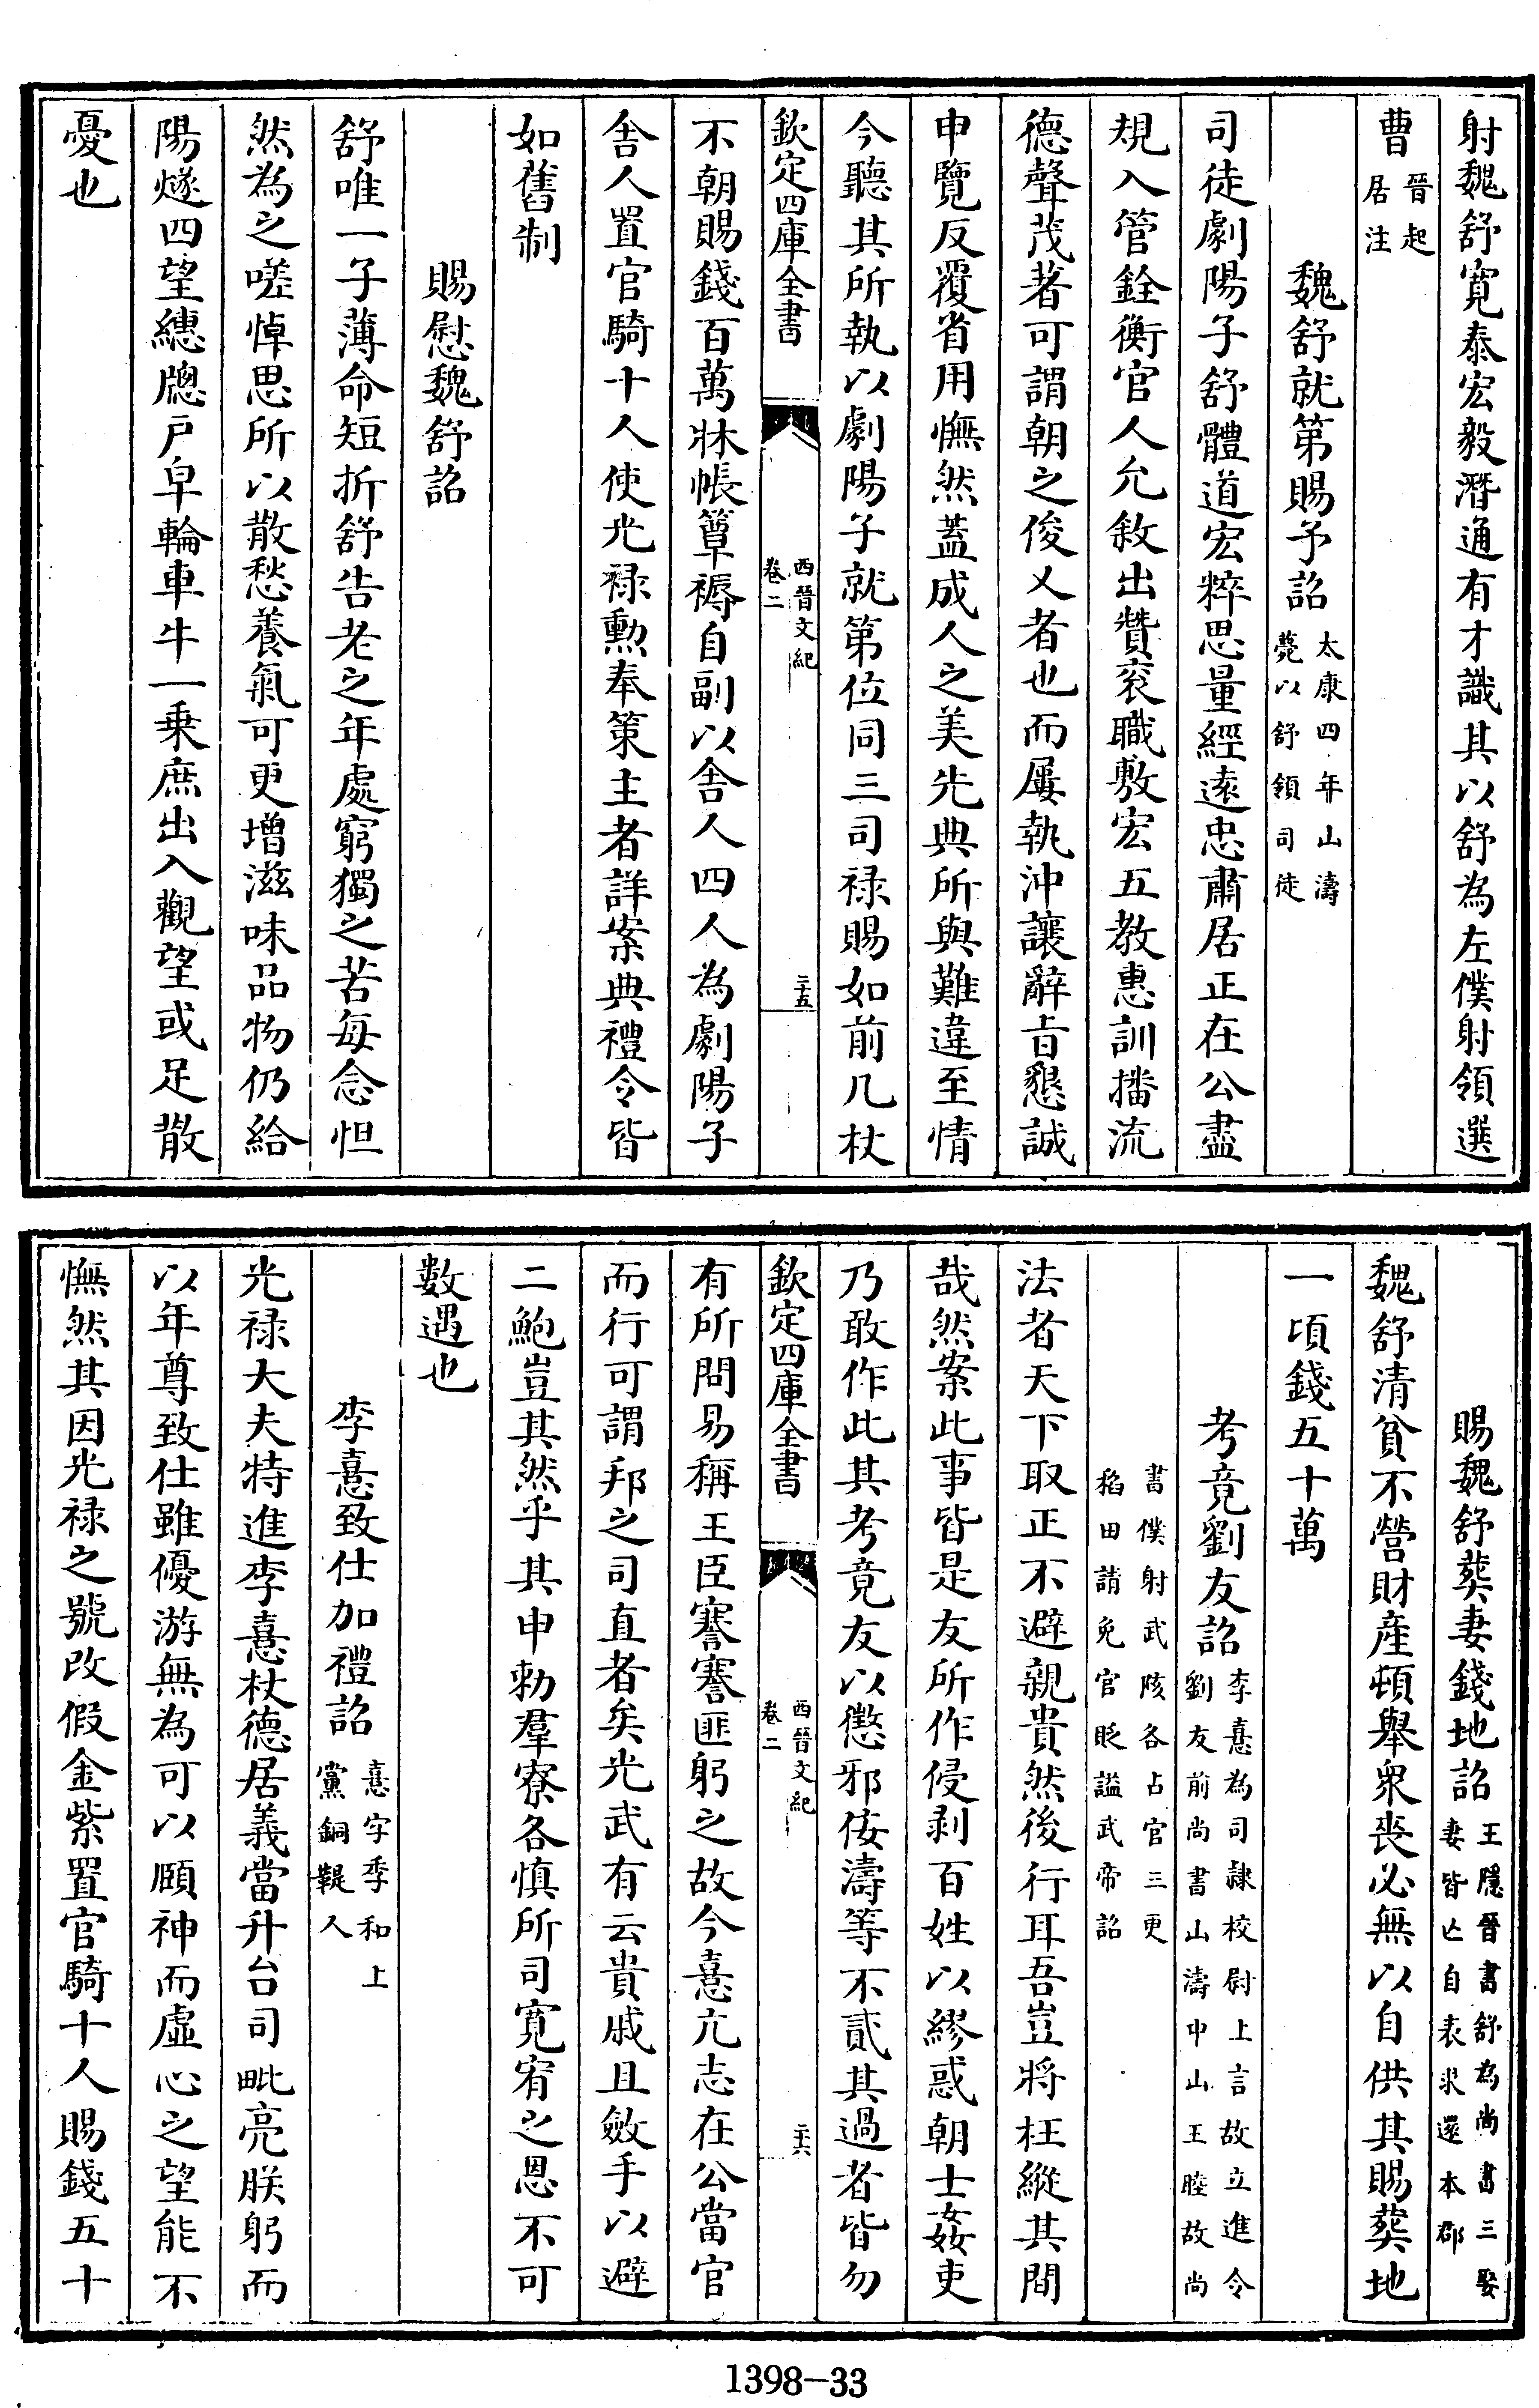 射魏舒寛泰宏毅潛通有才識其以舒為左僕射領選
曹晉起居注
魏舒就第賜予詔太康四年山濤薨以舒領司徒
司徒劇陽子舒體道宏粹思量經遠忠肅居正在公盡
規入管銓衡官人允敘出贊衮職敷宏五教惠訓播流
德聲茂著可謂朝之俊乂者也而屢執沖讓辭旨懇誠
申覽反覆省用憮然蓋成人之美先典所與難違至情
今聽其所執以劇陽子就第位同三司禄賜如前几杖
欽定四庫全書 西晉文紀 卷二 二十五
不朝賜錢百萬牀帳簟褥自副以舍人四人為劇陽子
舍人置官騎十人使光禄勳奉策主者詳案典禮令皆
如舊制
賜慰魏舒詔
舒唯一子薄命短折舒告老之年處窮獨之苦每念怛
然為之嗟悼思所以散愁養氣可更增滋味品物仍給
陽燧四望繐牕户皁輪車牛一乗庶出入觀望或足散
憂也
賜魏舒葬妻錢地詔王隱晉書舒為尚書三娶妻皆亡自表求還本郡
魏舒清貧不營財産頓舉衆喪必無以自供其賜葬地
一頃錢五十萬
考竟劉友詔李憙為司隸校尉上言故立進令劉友前尚書山濤中山王睦故尚
書僕射武陔各占官三更稻田請免官貶謚武帝詔
法者天下取正不避親貴然後行耳吾豈將枉縱其間
哉然案此事皆是友所作侵剥百姓以繆惑朝士姦吏
乃敢作此其考竟友以懲邪佞濤等不貳其過者皆勿
欽定四庫全書 西晉文紀 卷二 二十六
有所問易稱王臣謇謇匪躬之故今憙亢志在公當官
而行可謂邦之司直者矣光武有云貴戚且斂手以避
二鮑豈其然乎其申勅羣寮各慎所司寛宥之恩不可
數遇也
李憙致仕加禮詔憙字季和上黨銅鞮人
光禄大夫特進李憙杖德居義當升台司毗亮朕躬而
以年尊致仕雖優游無為可以頤神而虛心之望能不
憮然其因光禄之號改假金紫置官騎十人賜錢五十
1398-33